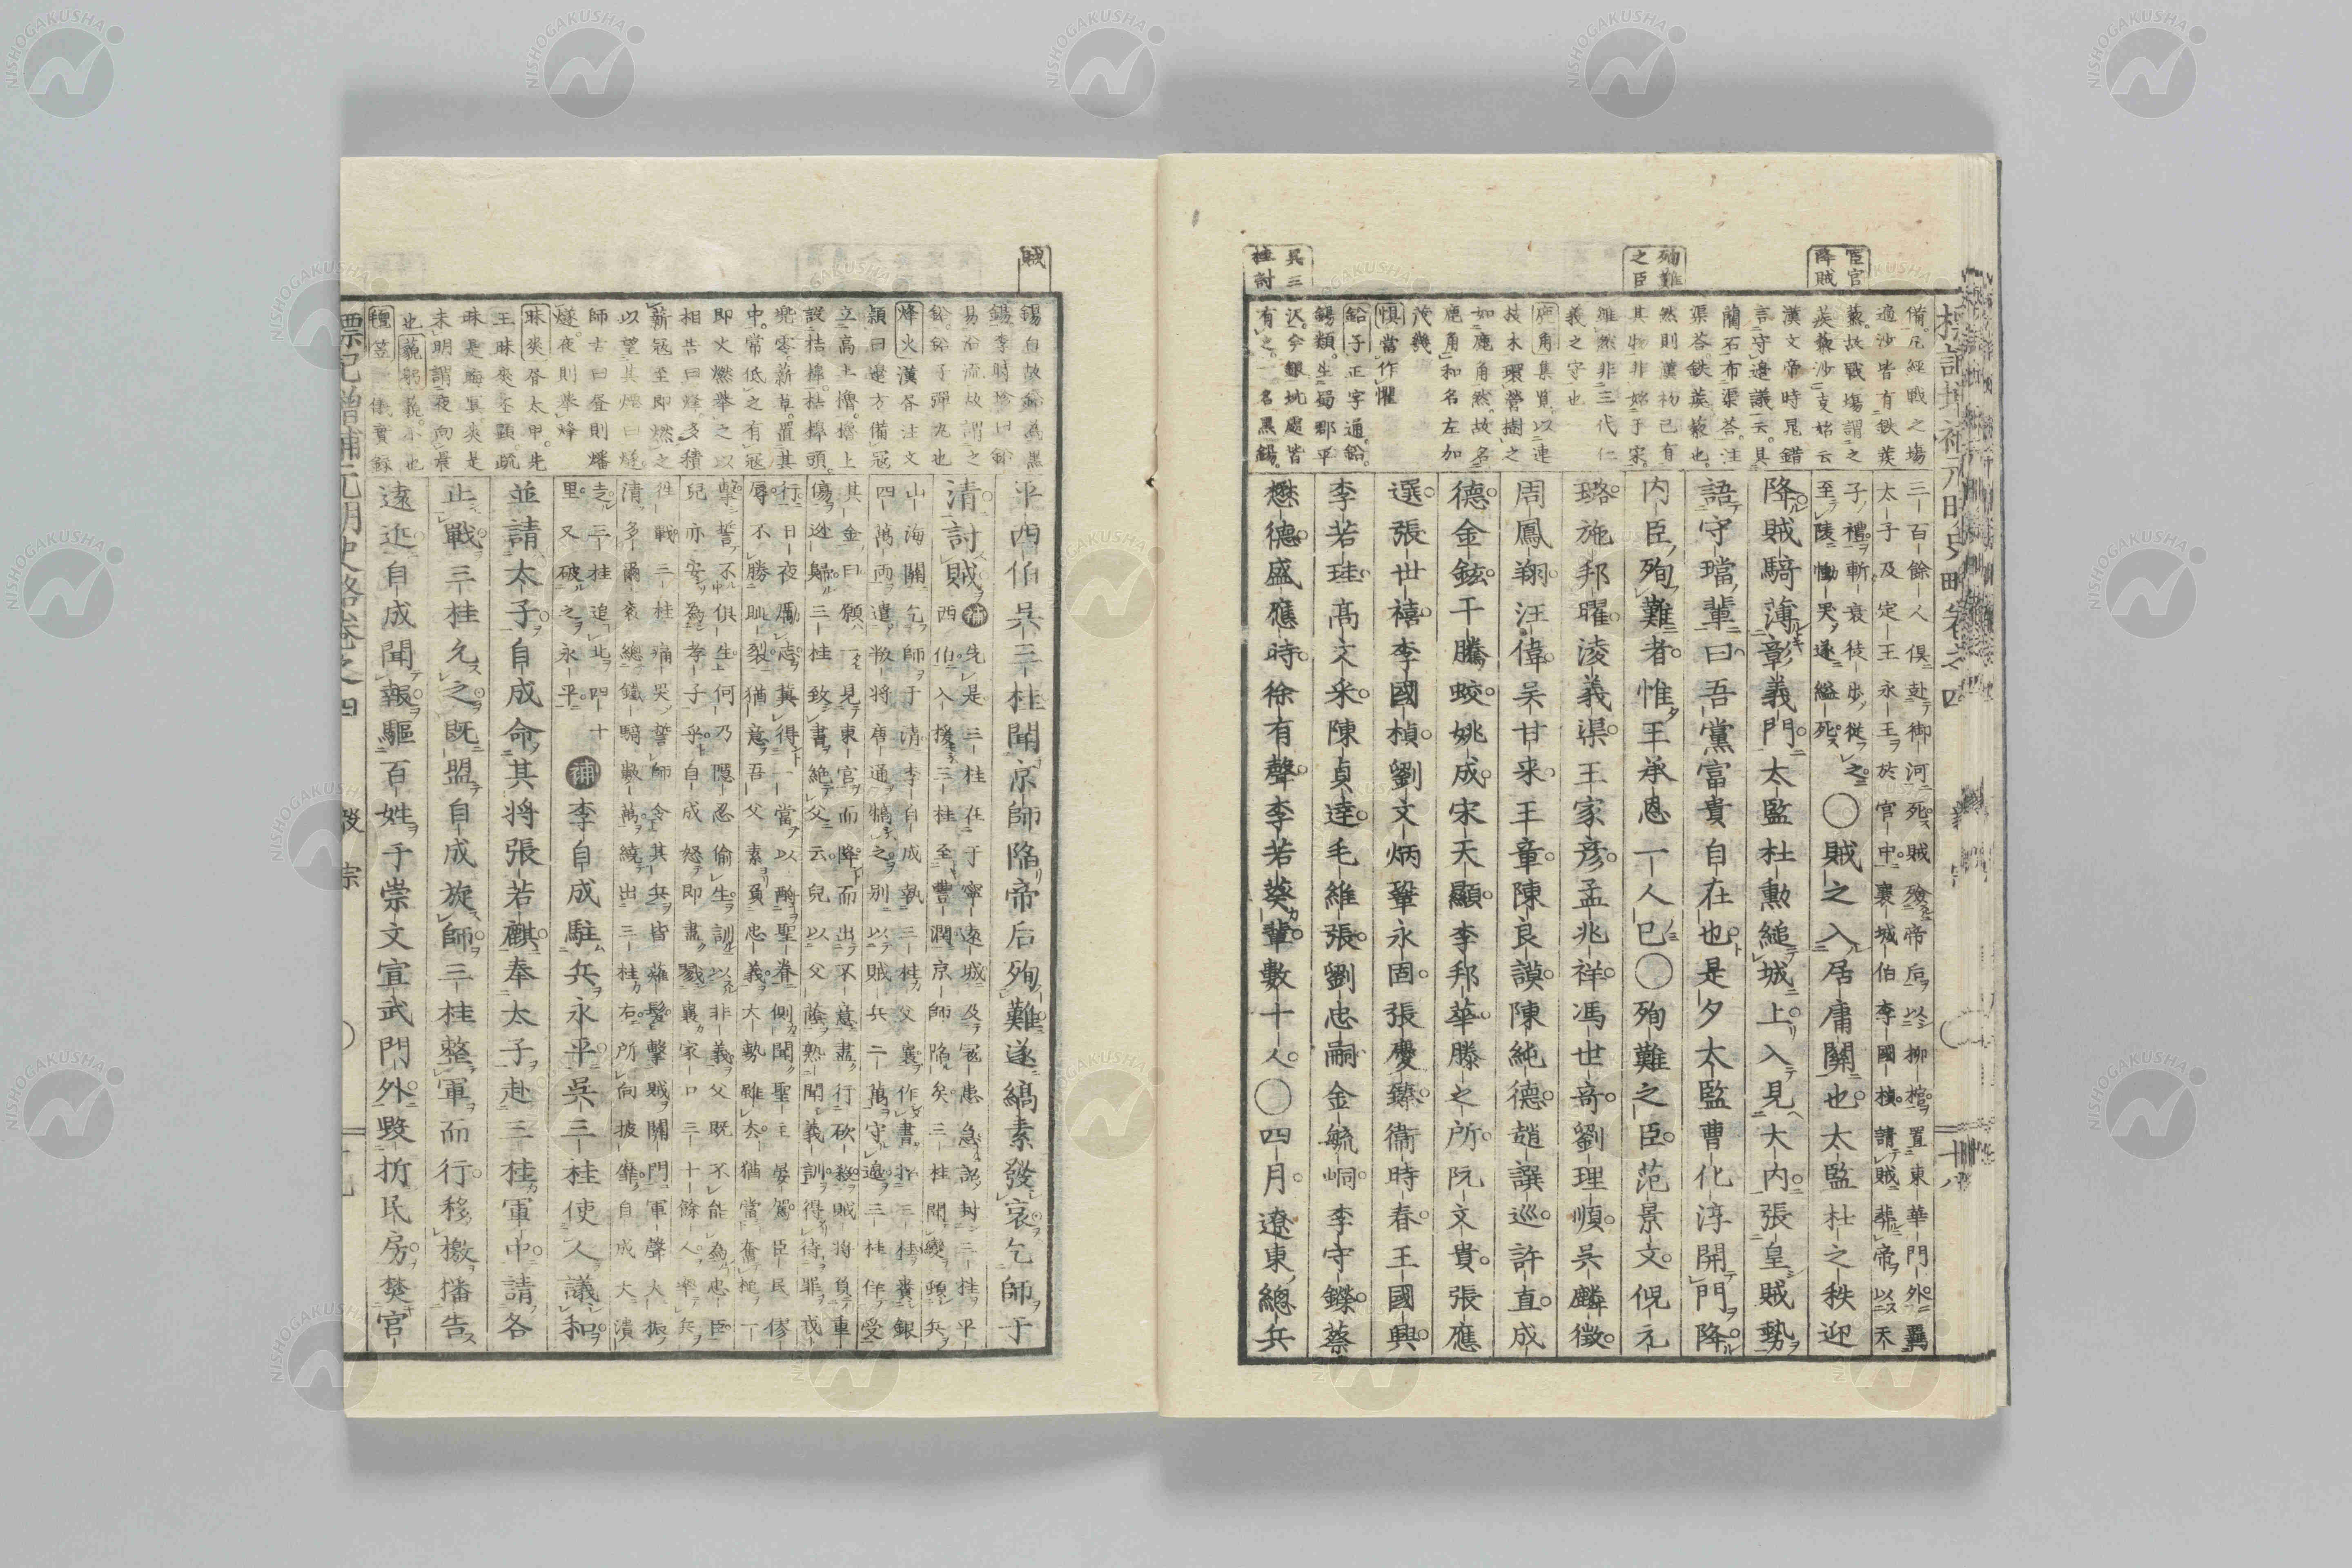 標記增補元明史略卷之四
十八
宦官降賊
殉難之臣
吳三桂討
備。凡經戰之場
適沙皆有鉄蒺
藜。故戰塲謂之
蒺藜沙支始云
漢文帝時晁錯
言守邊議云。具
藺石布渠荅。注
渠荅鉄蒺藜也。
然則漢初已有
其物非始于宋。
雖然非三代仁
義之守也
鹿角集覽以連
技木環營樹之
如鹿角然。故名
鹿角和名左加
茂幾
惧當作懼
鉛子正字通。鉛。
錫類。生蜀郡平
沢。今銀坑處皆
有之。一名黑錫。
三百餘人俱赴御河死賊殮帝后以柳棺置東華門外羈
太子及定王永王於宮中襄城伯李國楨請賊葬帝以天
子禮斬衰徒步從之
至陵慟哭遂縊死
○賊之入居庸關也太監杜之秩迎
降賊騎薄彰義門太監杜勲縋城上入見大內張皇賊勢
語守璫輩曰吾黨富貴自在也是夕太監曹化淳開門降
內臣殉難者惟王承恩一人已○殉難之臣范景文倪元
璐施邦曜淩義渠王家彦孟兆祥馮世竒劉理順吳麟徵
周鳳翔汪偉吴甘来王章陳良謨陳純德趙譔巡許直成
德金鉉干騰蛟姚成宋天顯李邦華滕之所阮文貴張應
選張世禧李國楨劉文炳鞏永固張慶臻衛時春王國興
李若珪髙文采陳貞達毛維張劉忠嗣金毓峒李守鑅蔡
懋德盛應時徐有聲李若葵輩數十人○四月遼東總兵
賊
錫白故鉛為黑
錫李時珍曰鉛
易沿流故謂之
鉛。鉛子彈丸也
烽火漢書注文
頴曰邊方備冦
立高土櫓。櫓上
設桔槹。桔槹頭。
兜零。薪草。置其
中。常低之有冦
即火燃舉之以
相告曰烽。多積
薪冦至即燃之
以望其煙曰燧。
師古曰昼則燔
燧。夜則舉烽
昧爽書太甲。先
王昧爽丕顯。疏
昧是晦冥爽是
未明謂夜向晨
也 藐躬藐。小也
儀實錄
平西伯吳三桂聞京師陷帝后殉難遂縞素發哀乞師于
清討賊
補 先是三桂在于寧遠城及冦患急詔封三桂平
西伯入援三桂至豐潤京師陷矣三桂聞變頓兵
山海關乞師于清李自成執三桂父襄作書招三桂賚銀
四萬兩遣將唐通犒之別以賊兵二萬守邊三桂佯受
其金曰願一見東官而降而出不意盡行砍殺賊將負重
傷迯歸三桂致書絶父云兒以父蔭熟聞義訓得待罪戎
行日夜勵志冀得一當以酧聖眷側聞聖主晏駕臣民僇
辱不勝眦裂猶意吾父素負忠義大勢雖去猶當奮椎一
擊誓不俱生何乃隱忍偷生訓以非義父既不能為忠臣
兒亦安為孝子乎自成怒即盡戮襄家口三十餘人率兵
徃戰三桂痛哭誓師令其兵皆薙髮擊賊關門軍聲大振
清多爾衮總鐵騎數萬繞出三桂右所向披靡自成大潰
走三桂追北四十
里又破之永平
補 李自成駐兵永平吳三桂使人議和
並請太子自成命其将張若麒奉太子赴三桂軍中請各
止戰三桂允之既盟自成旋師三桂整軍而行移檄播告
遠近自成聞報驅百姓于崇文宣武門外毀拆民房焚官
標記增補元明史略卷之四
毅宗
十九